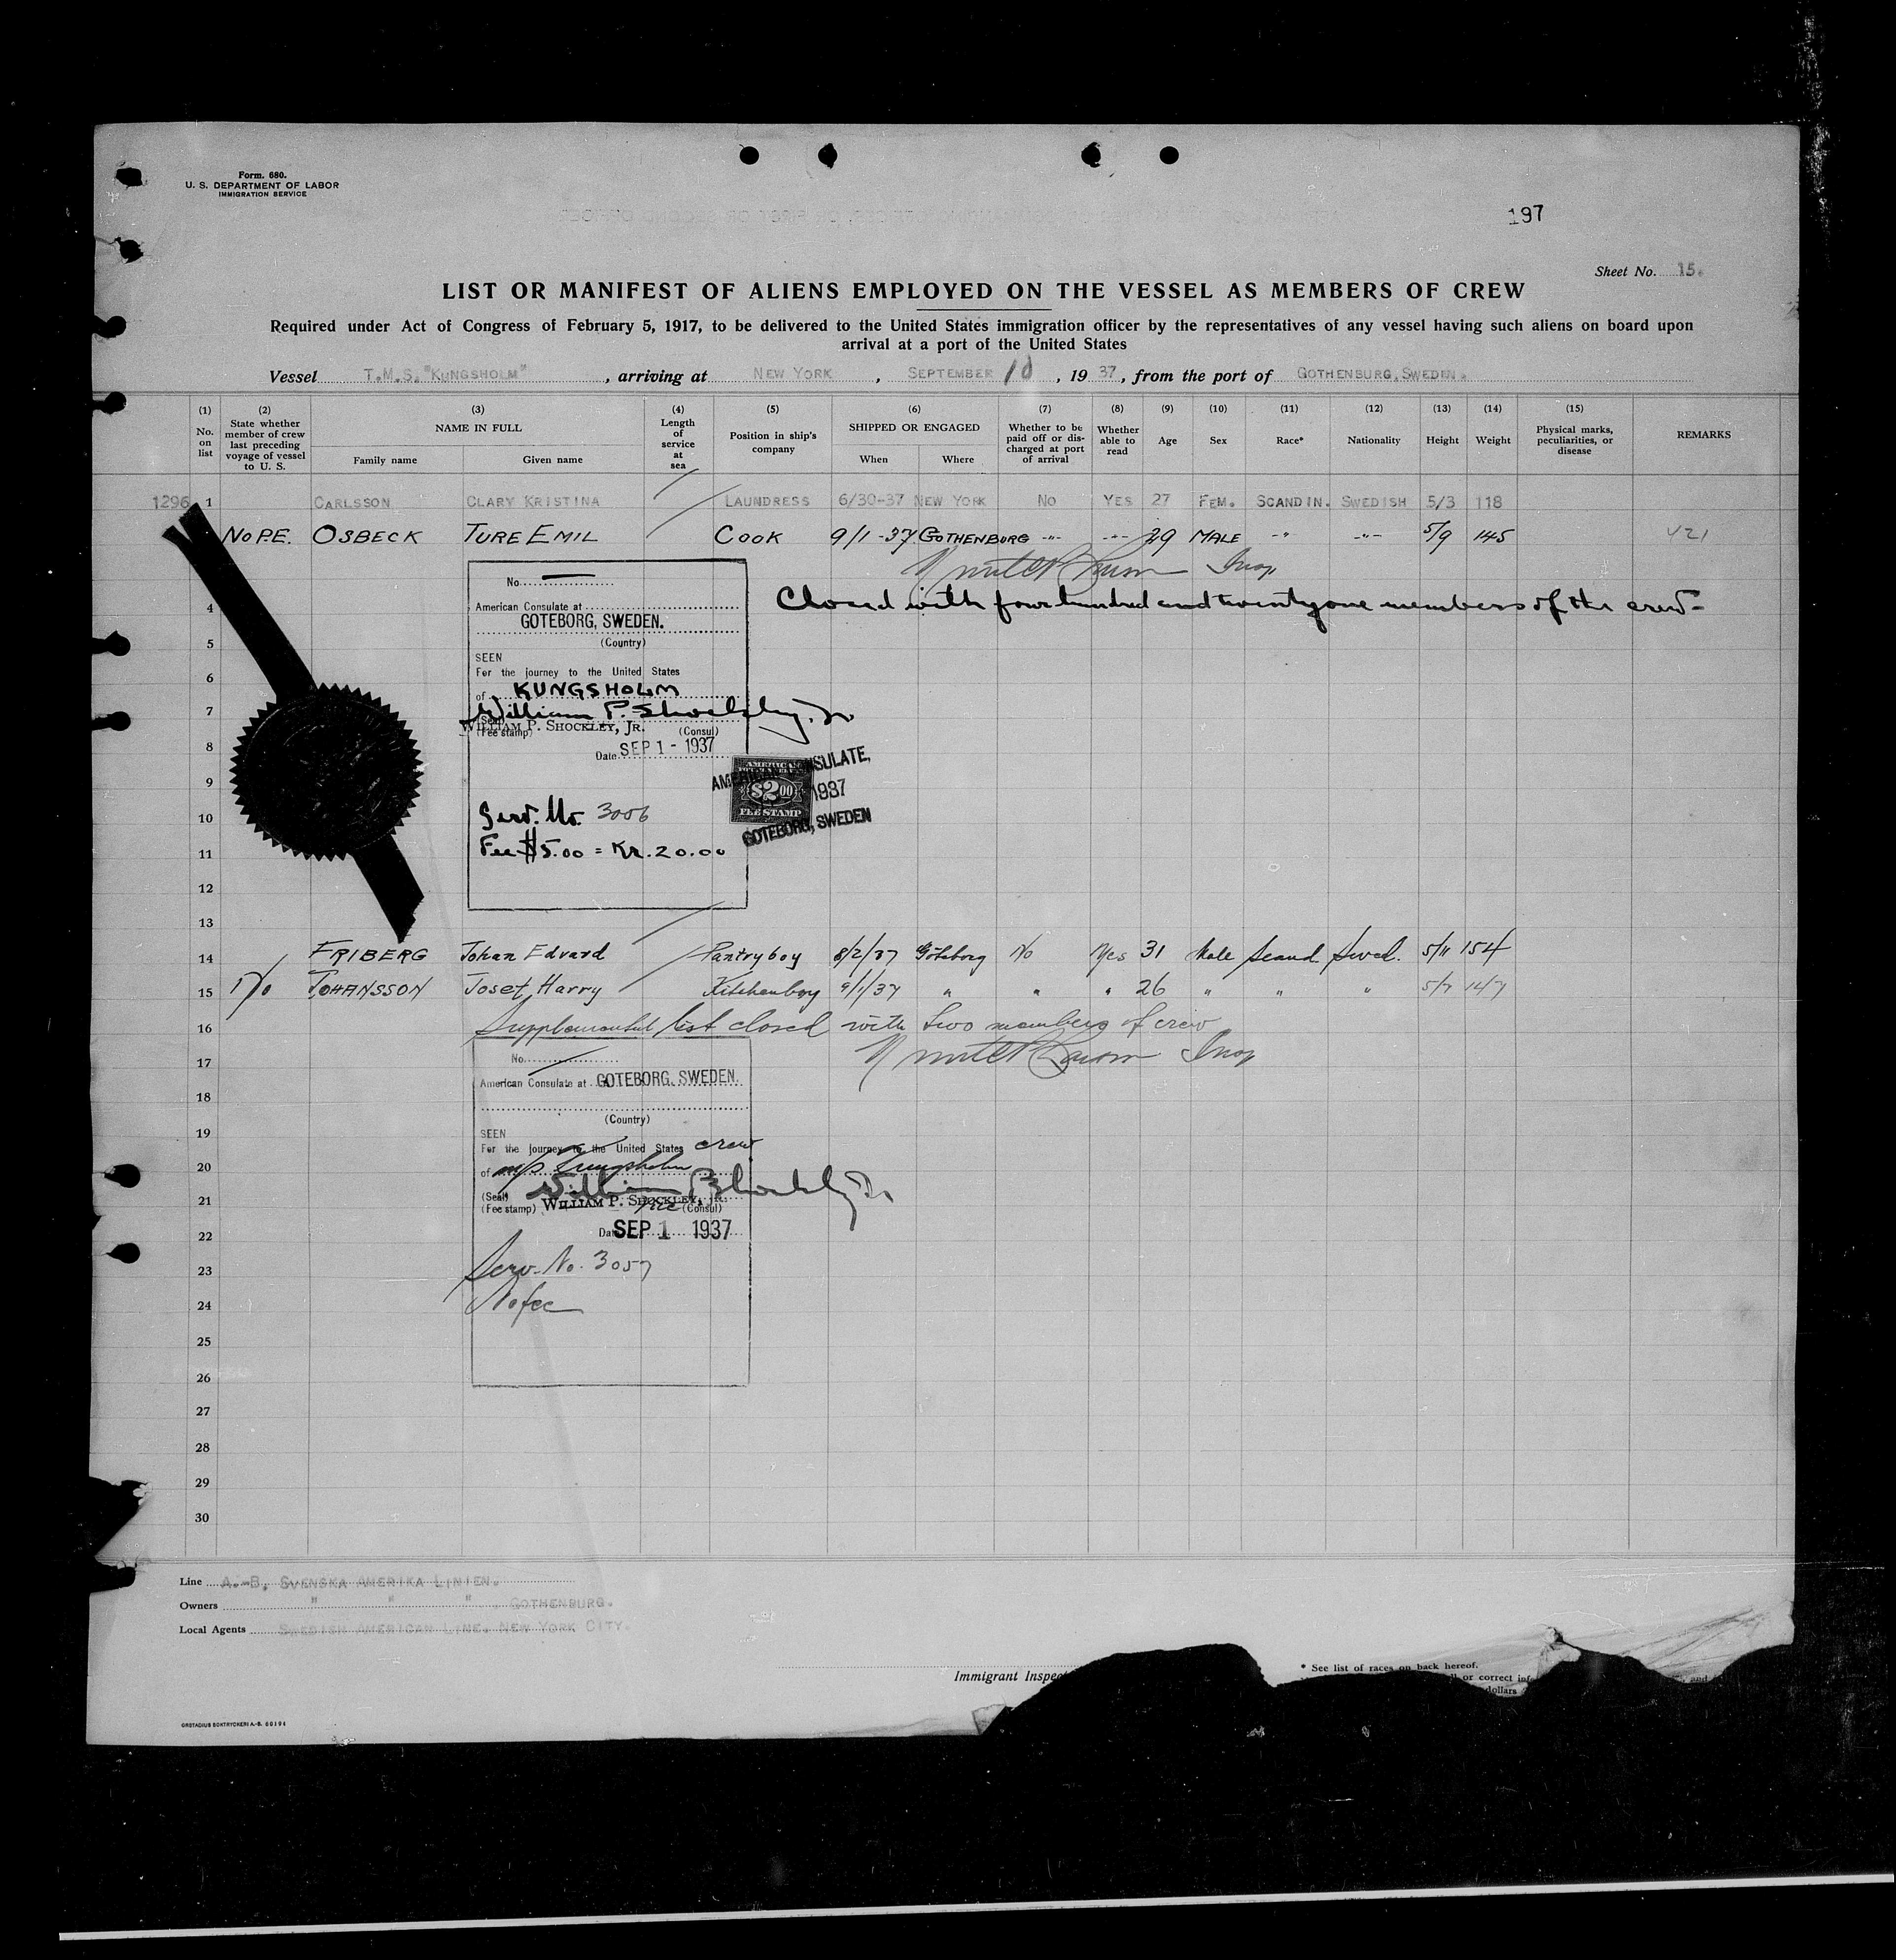 Form. 680.
U. S. DEPARTMENT OF LABOR
IMMIGRATION SERVICE
197
Sheet No. 15.
LIST OR MANIFEST OF ALIENS EMPLOYED ON THE VESSEL AS MEMBERS OF CREW
Required under Act of Congress of February 5, 1917, to be delivered to the United States immigration officer by the representatives of any vessel having such aliens on board upon
arrival at a port of the United States
Vessel T.M.S. "KUNGSHOLM", arriving at NEW YORK, SEPTEMBER 10, 1937, from the port of GOTHENBURG, SWEDEN.
(1) No. on list
(2) State whether member of crew last preceding voyage of vessel to U. S.
(3) NAME IN FULL Family name Given name
(4) Length of service at sea
(5) Position in ship's company
(6) SHIPPED OR ENGAGED When Where
(7) Whether to be paid off or dis-charged at port of arrival
(8) Whether able to read
(9) Age
(10) Sex
(11) Race*
(12) Nationality
(13) Height
(14) Weight
(15) Physical marks, peculiarities, or disease
REMARKS
1296 1 CARLSSON CLARY KRISTINA LAUNDRESS 6/30-37 NEW YORK NO YES 27 FEM. SCANDIN. SWEDISH 5/3 118
NO P.E. OSBECK TURE EMIL COOK 9/1-37 GOTHENBURG -"- -"- 29 MALE -"- -"- 5/9 145 421
Insp
Closed with four hundred and twentyone members of the crew-
No.
American Consulate at
GOTEBORG, SWEDEN.
(Country)
SEEN
For the journey to the United States
of KUNGSHOLM
William P. Shockley, Jr.
(Seal)
WILLIAM P. SHOCKLEY, JR.
(Fee stamp) (Consul)
Date SEP 1 - 1937
AMERICAN CONSULATE,
1937
GOTEBORG, SWEDEN
AMERICAN
$2.00
FEE STAMP
Serv. No. 3056
Fee $5.00 = Kr. 20.00
4
5
6
7
8
9
10
11
12
13
14 FRIBERG Johan Edvard Pantryboy 8/2/37 Göteborg No Yes 31 Male Scand Swed. 5/11 154
15 No JOHANSSON Josef Harry Kitchenboy 9/1/37 " " " 26 " " " 5/7 147
16 Supplemental list closed with two members of crew
17 Insp
No.
American Consulate at GOTEBORG, SWEDEN.
(Country)
SEEN
For the journey to the United States crew
of m/s Kungsholm
William P. Shockley Jr.
(Seal)
(Fee stamp) WILLIAM P. SHOCKLEY, JR. (Consul)
Date SEP 1 1937
Serv. No. 3057
No fee
18
19
20
21
22
23
24
25
26
27
28
29
30
Line A.-B. SVENSKA AMERIKA LINIEN.
Owners " " " , GOTHENBURG.
Local Agents SWEDISH AMERICAN LINE. NEW YORK CITY.
Immigrant Inspec
* See list of races on back hereof.
or correct inf
dollars
and
ORSTADIUS BOKTRYCKERI A.-B. 80194